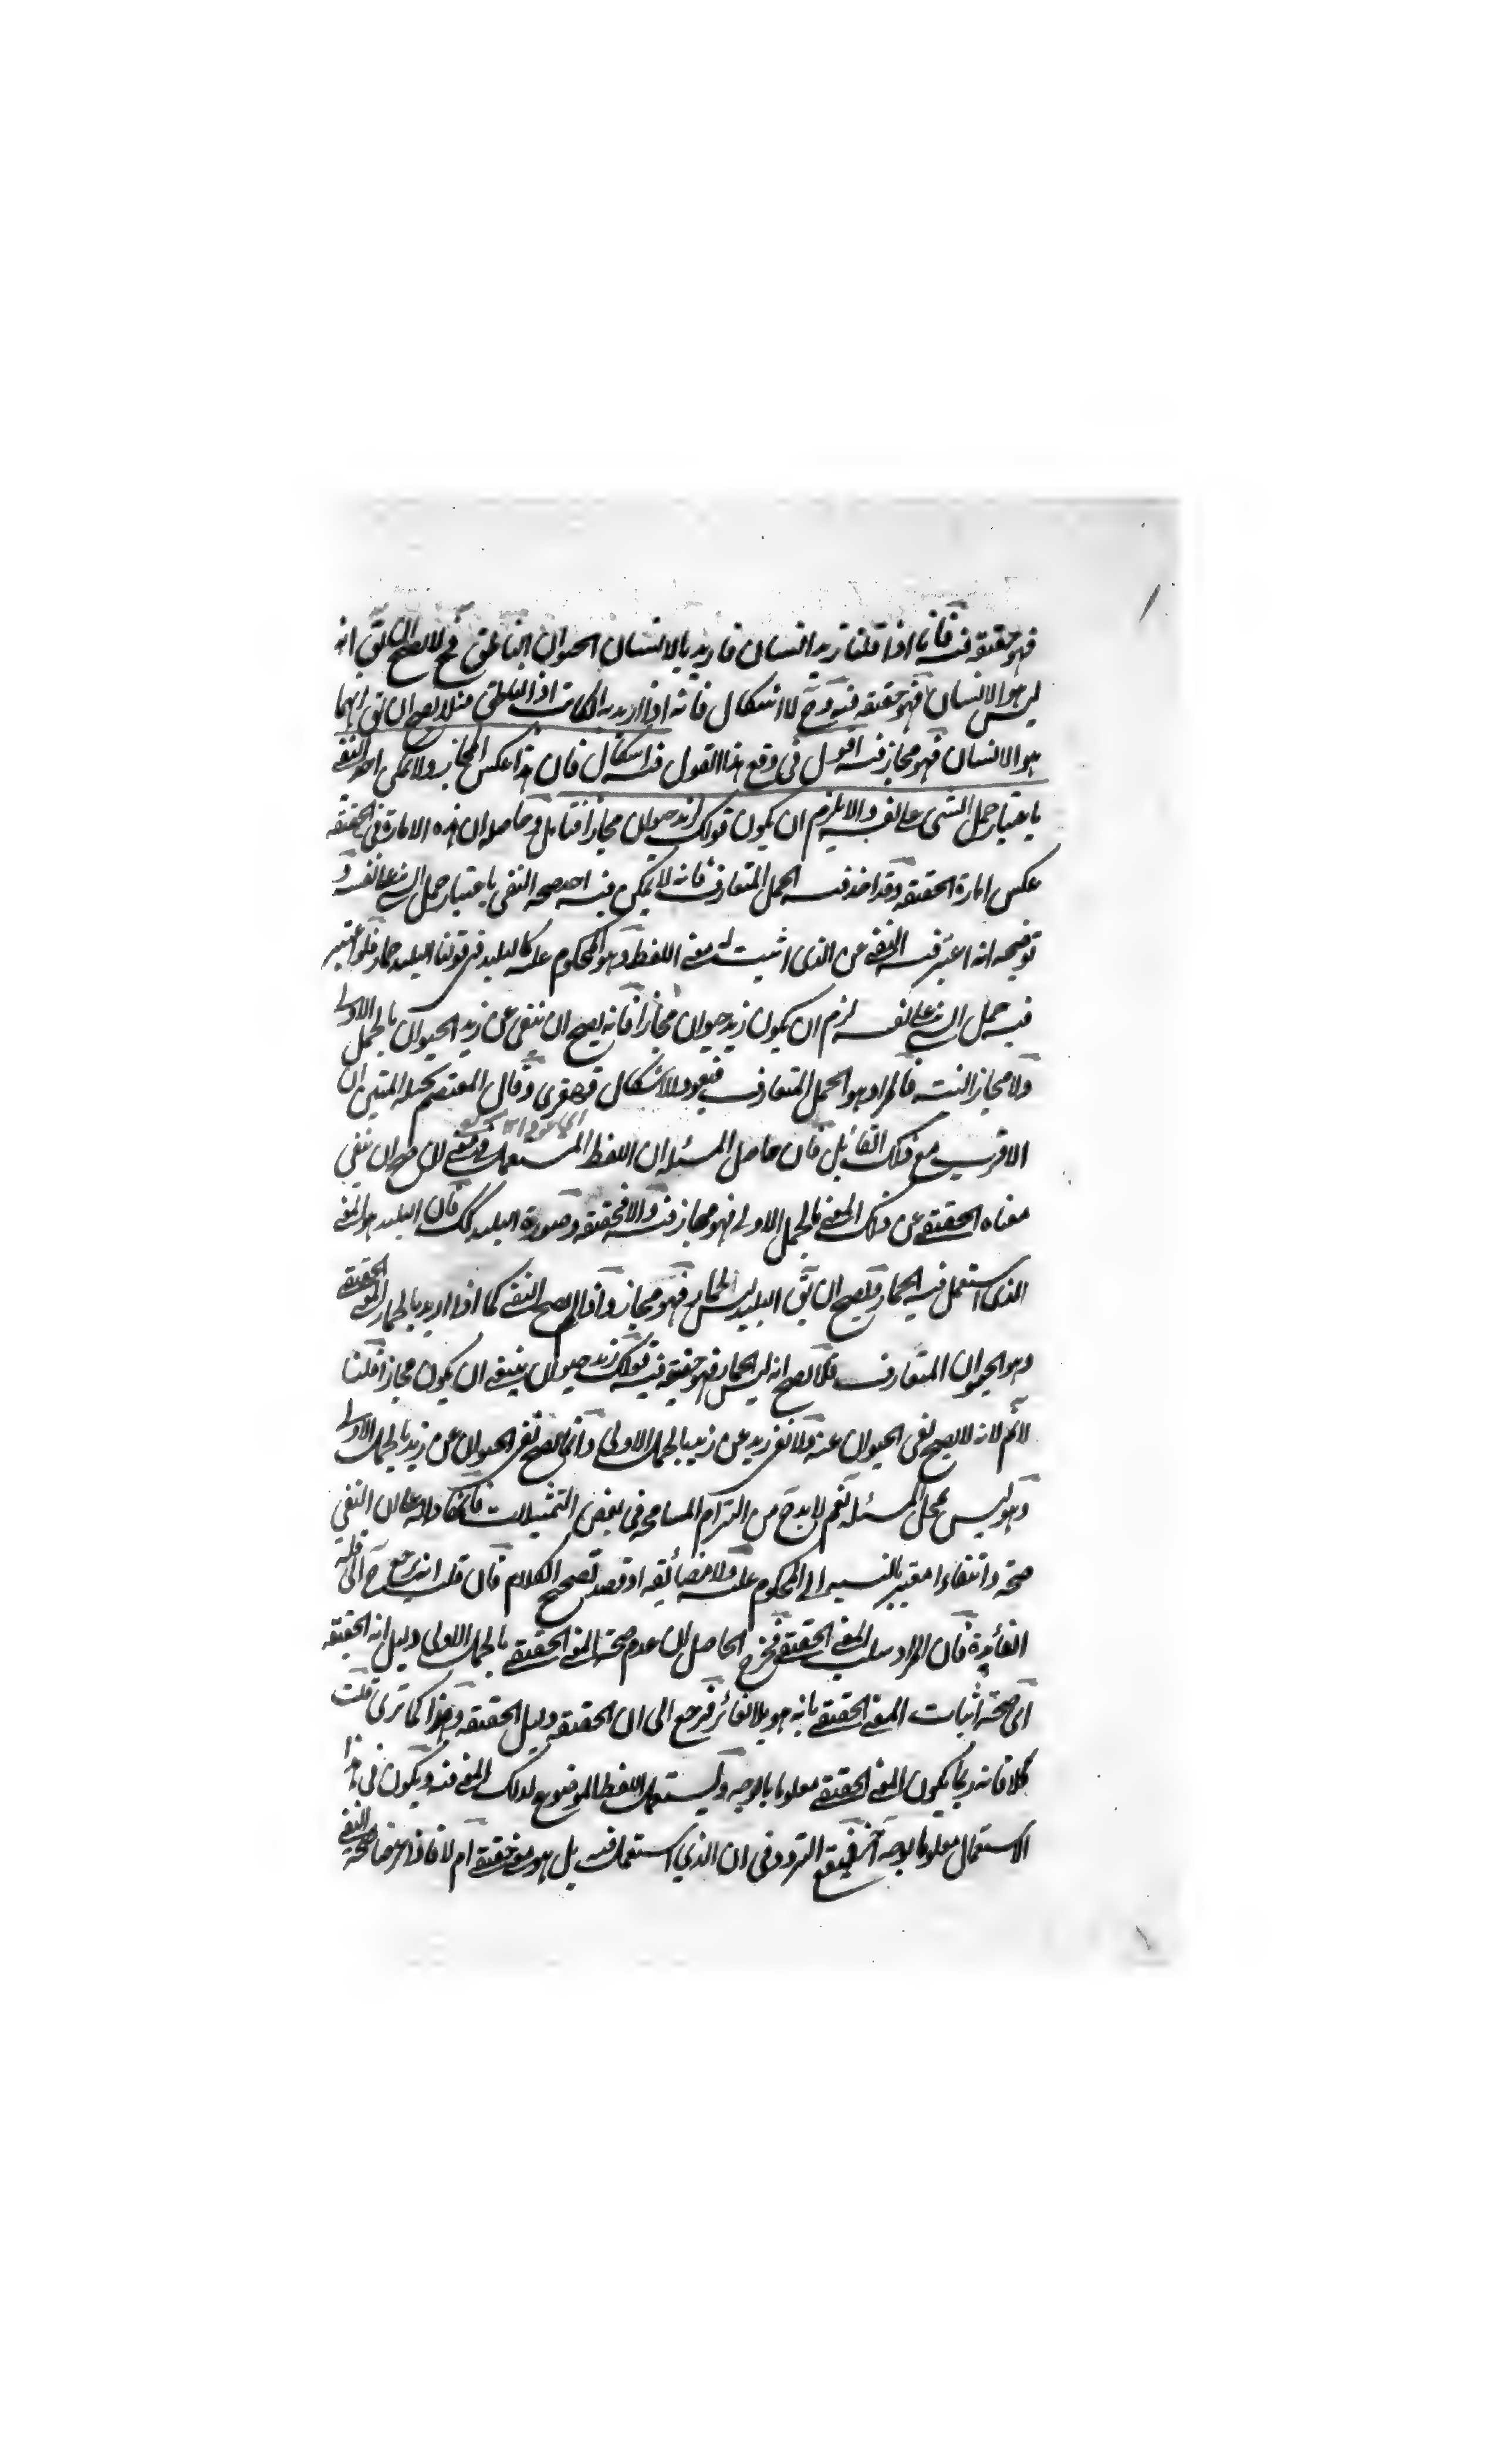 فهو حقيقة فيه فانا اذا قلنا زيد انسان فاريد بالانسان الحيوان الناطق فح لا يصح ان يق انه
ليس هو الانسان فهو حقيقة فيه وح لا اشكال فانه اذا اريد به الكاتب او الناطق مثلا يصح ان يق انهما
هو الانسان فهو مجاز فيه اقول في وقع هذا القول فيه اشكال فان هذا عكس المجاز ولا يمكن اخذ النفي
باعتبار حمل الشيء على نفسه والا يلزم ان يكون قولك زيد حيوان مجازا فتامل وحاصله ان هذه الامارة في الحقيقة
عكس امارة الحقيقة وقد اخذ فيه الحمل المتعارف فانه لا يمكن فيه اخذ صحة النفي باعتبار حمل الشيء على نفسه و
توضيحه انه اعتبر فيه النفي عن الذي اثبت له معنى اللفظ وهو المحكوم عليه كالبليد في قولنا البليد حمار فلو اعتبر
فيه حمل الشيء على نفسه لزم ان يكون زيد حيوان مجازا فانه يصح ان ينفى عن زيد الحيوان بالحمل الاولى
ولا مجاز البتة فالمراد هو الحمل المتعارف فيعود الاشكال قهقرى وقال المعتصم بحبله المتين ان
الاقرب مع ذلك القائل فان حاصل المسئلة ان اللفظ المستعمل في معنى لان صح ان ينفى
معناه الحقيقي عن ذلك المعنى بالحمل الاولى فهو مجاز فيه والا فحقيقة وصورة البليد كك فان البليد هو المعنى
الذي استعمل فيه الحمار ويصح ان يق البليد ليس الحمار فهو مجاز واذا لم يصح النفي كما اذا اريد بالحمار المعنى الحقيقي
وهو الحيوان المتعارف فلا يصح انه ليس الحمار فهو حقيقة فيه قولك زيد حيوان ينبغي ان يكون مجازا قلنا
لا نم لانه لا يصح نفي الحيوان عنه ولا نفي زيد عن زيد بالحمل الاولى وانما يصح نفي الحيوان عن زيد بالحمل الاولى
وهو ليس محل المسئلة نعم لا بد ح من التزام المسامحة في بعض التمثيلات فانها دالة على ان النفي
صحة وانتفاءا معتبر بالنسبة الى المحكوم عليه ولا مضائقة اذ قصد تصحيح الكلام فان قلت انه يرجع ح الى قلة
الفائدة فان المراد سلب المعنى الحقيقي فخرج الحاصل ان عدم صحة المعنى الحقيقي بالحمل الاولى دليل انه الحقيقة
اي صحة اثبات المعنى الحقيقي بانه هو بلا تغائر فرجع الى ان الحقيقة دليل الحقيقة وهذا كما ترى قلت
كلا فانه ربما يكون المعنى الحقيقي معلوما بالوجه ويستعمل اللفظ الموضوع لذلك المعنى فيه ويكون في هذا
الاستعمال معلوما بوجه آخر فيقع التردد في ان الذي استعمل فيه بل هو معنى حقيقي ام لا فاذا عرضنا صحة النفي